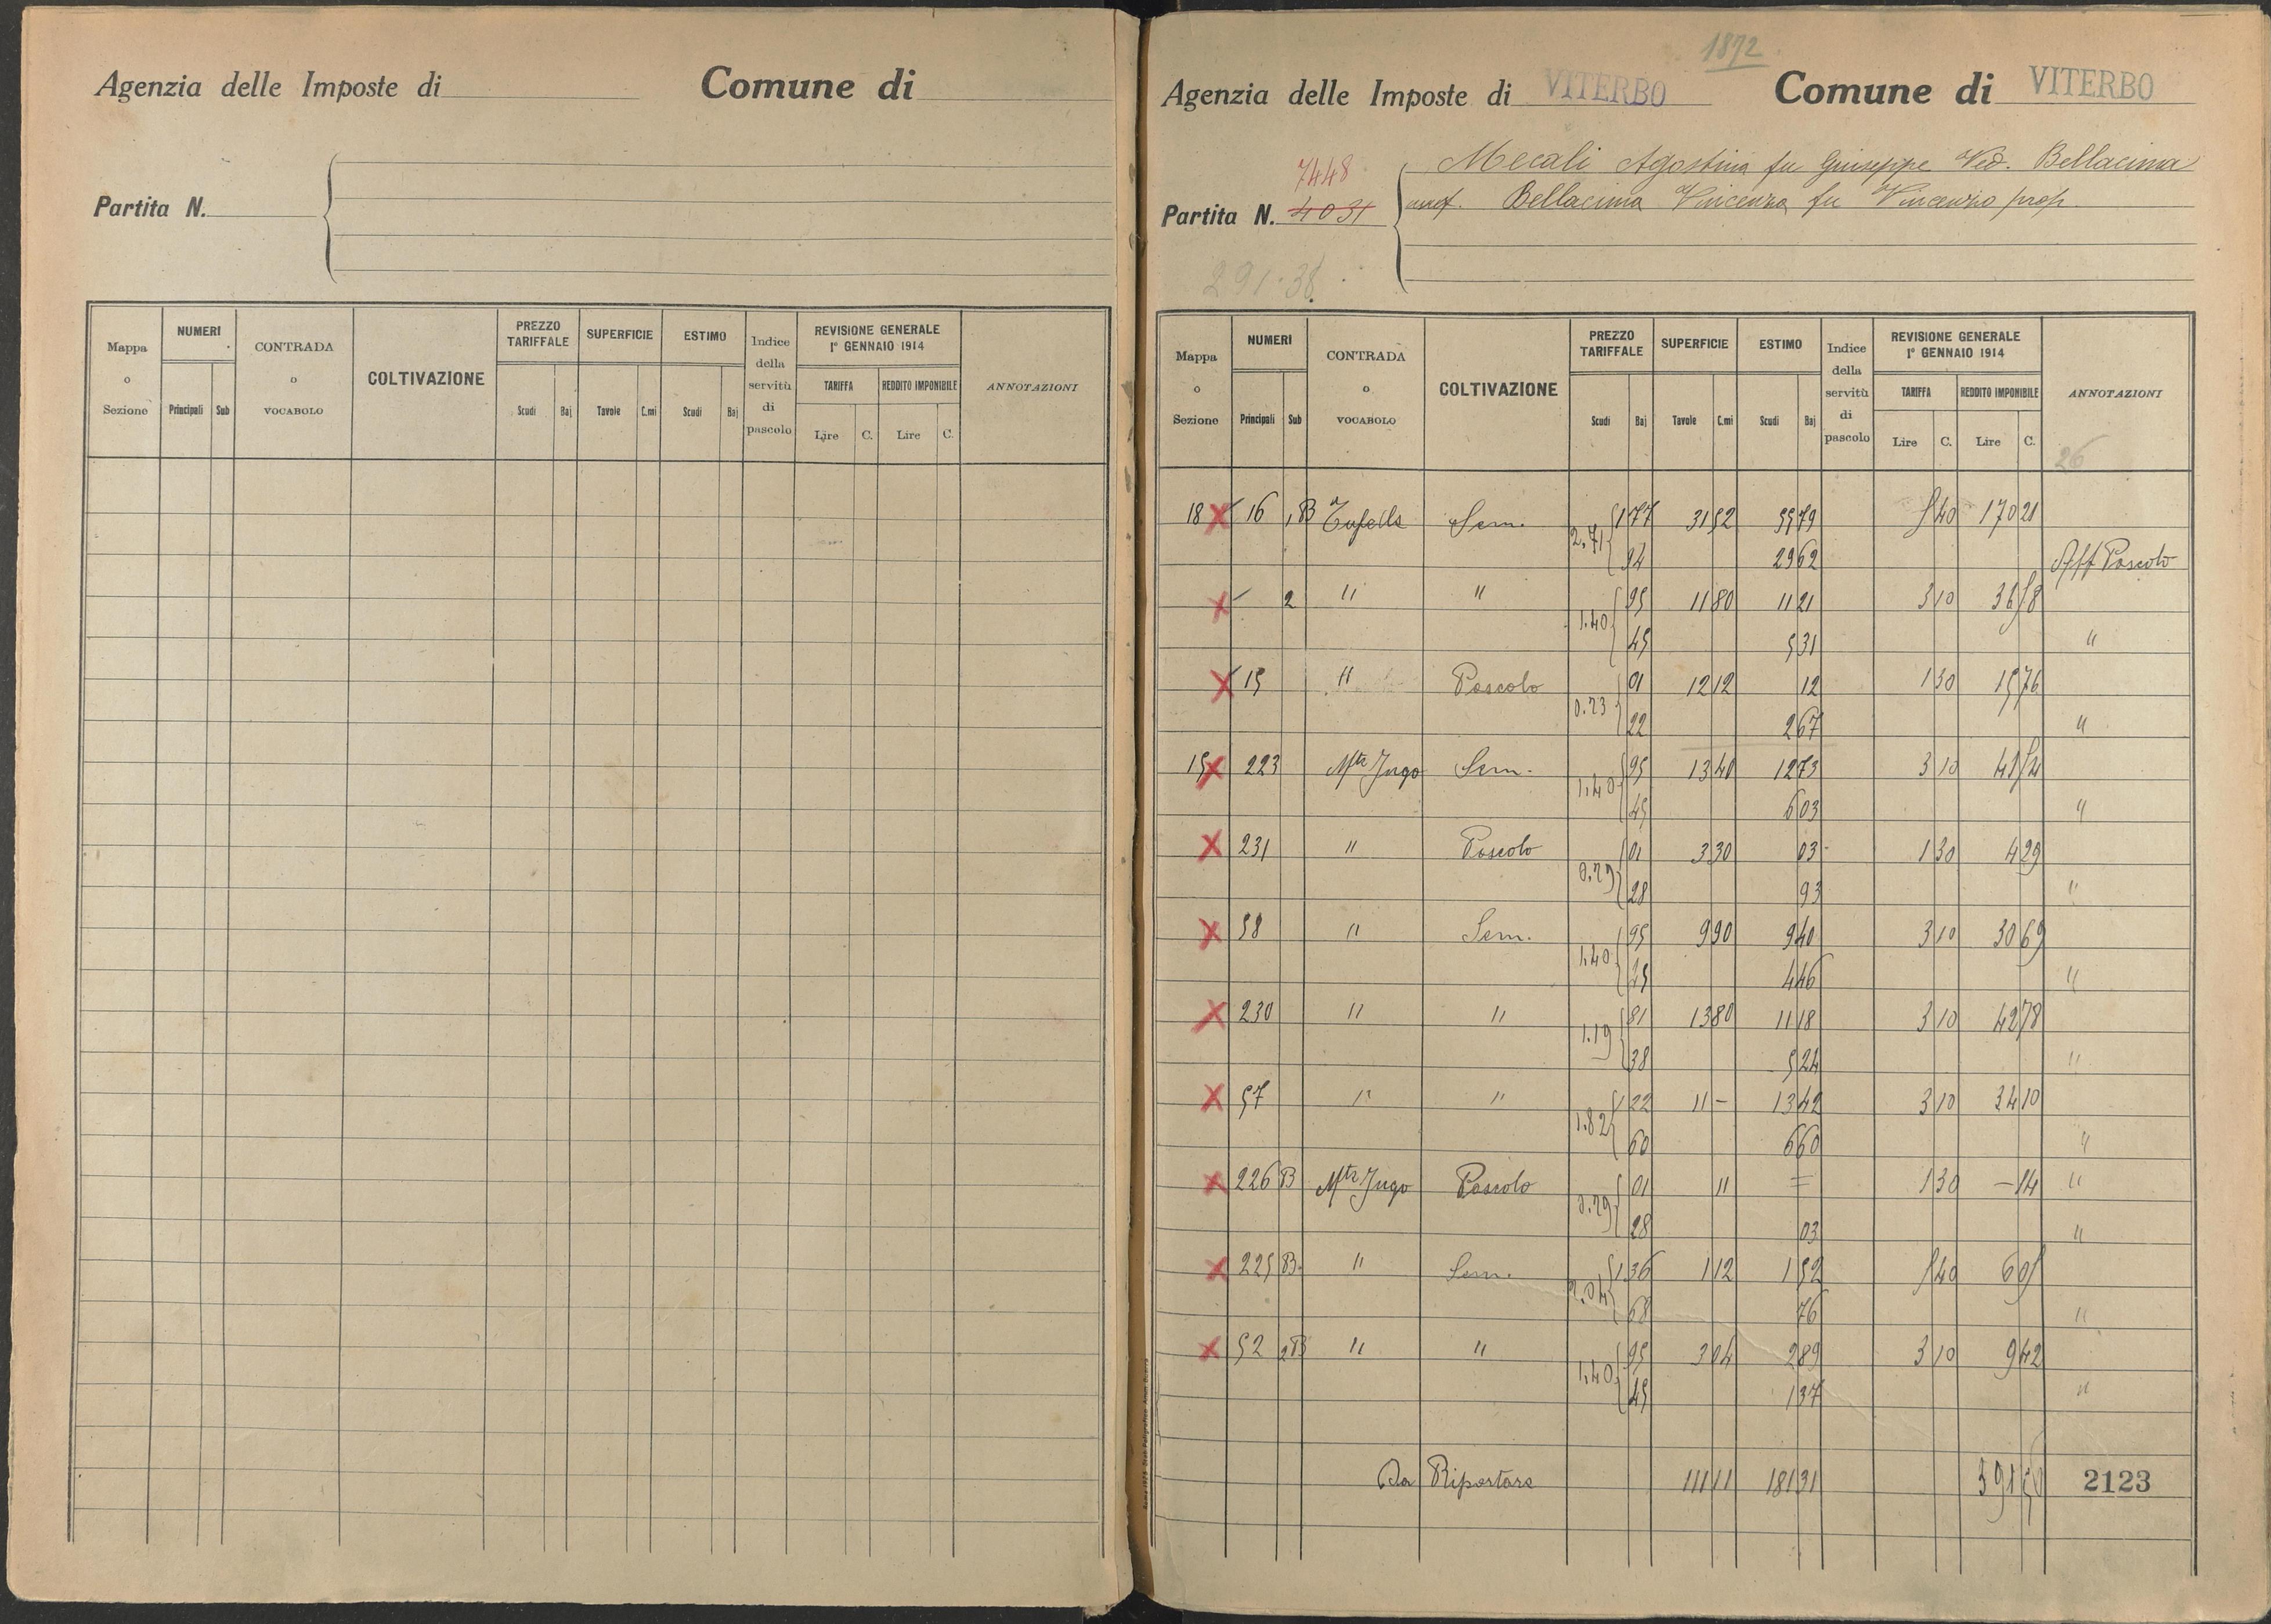 Agenzia delle Imposte di Comune di
Partita N.
Mappa o Sezione NUMERI Principali Sub CONTRADA o VOCABOLO COLTIVAZIONE PREZZO TARIFFALE Scudi Baj SUPERFICIE Tavole C.mi ESTIMO Scudi Baj Indice della servitù di pascolo REVISIONE GENERALE 1° GENNAIO 1914 TARIFFA Lire C. REDDITO IMPONIBILE Lire C. ANNOTAZIONI
1872
Agenzia delle Imposte di VITERBO Comune di VITERBO
Mecali Agostina fu Giuseppe Ved. Bellacima
7448
Partita N. 4031 usuf. Bellacima Vincenza fu Vincenzo prop.
291.38
Mappa o Sezione NUMERI Principali Sub CONTRADA o VOCABOLO COLTIVAZIONE PREZZO TARIFFALE Scudi Baj SUPERFICIE Tavole C.mi ESTIMO Scudi Baj Indice della servitù di pascolo REVISIONE GENERALE 1° GENNAIO 1914 TARIFFA Lire C. REDDITO IMPONIBILE Lire C. ANNOTAZIONI
26
18 X 16 1B Sem. 1 77 31 52 55 79 5 40 170 21
2.71 94 29 62 Aff Pascolo
X 2 " " 95 11 80 11 21 3 10 36 58
1.40 45 5 31 "
X 15 " Pascolo 01 12 12 12 1 30 15 76
0.23 22 2 67 "
15 X 223 Mte Jugo Sem. 95 13 40 12 73 3 10 41 54
1.40 45 6 03 "
X 231 " Pascolo 01 3 30 03 1 30 4 29
0.29 28 93 "
X 58 " Sem. 95 9 90 9 40 3 10 30 69
1.40 45 4 46 "
X 230 " " 81 13 80 11 18 3 10 42 78
1.19 38 5 24 "
X 57 " " 1 22 11 - 13 42 3 10 34 10
1.82 60 6 60 "
X 226 B Mte Jugo Pascolo 01 11 = 1 30 - 14 "
0.29 28 03 "
X 225 B " Sem. 1 36 1 12 1 52 5 40 6 05
2.04 68 76 "
X 52 2B " " 95 3 04 2 89 3 10 9 42
1.40 45 1 37 "
Da Riportare 111 11 181 31 2123